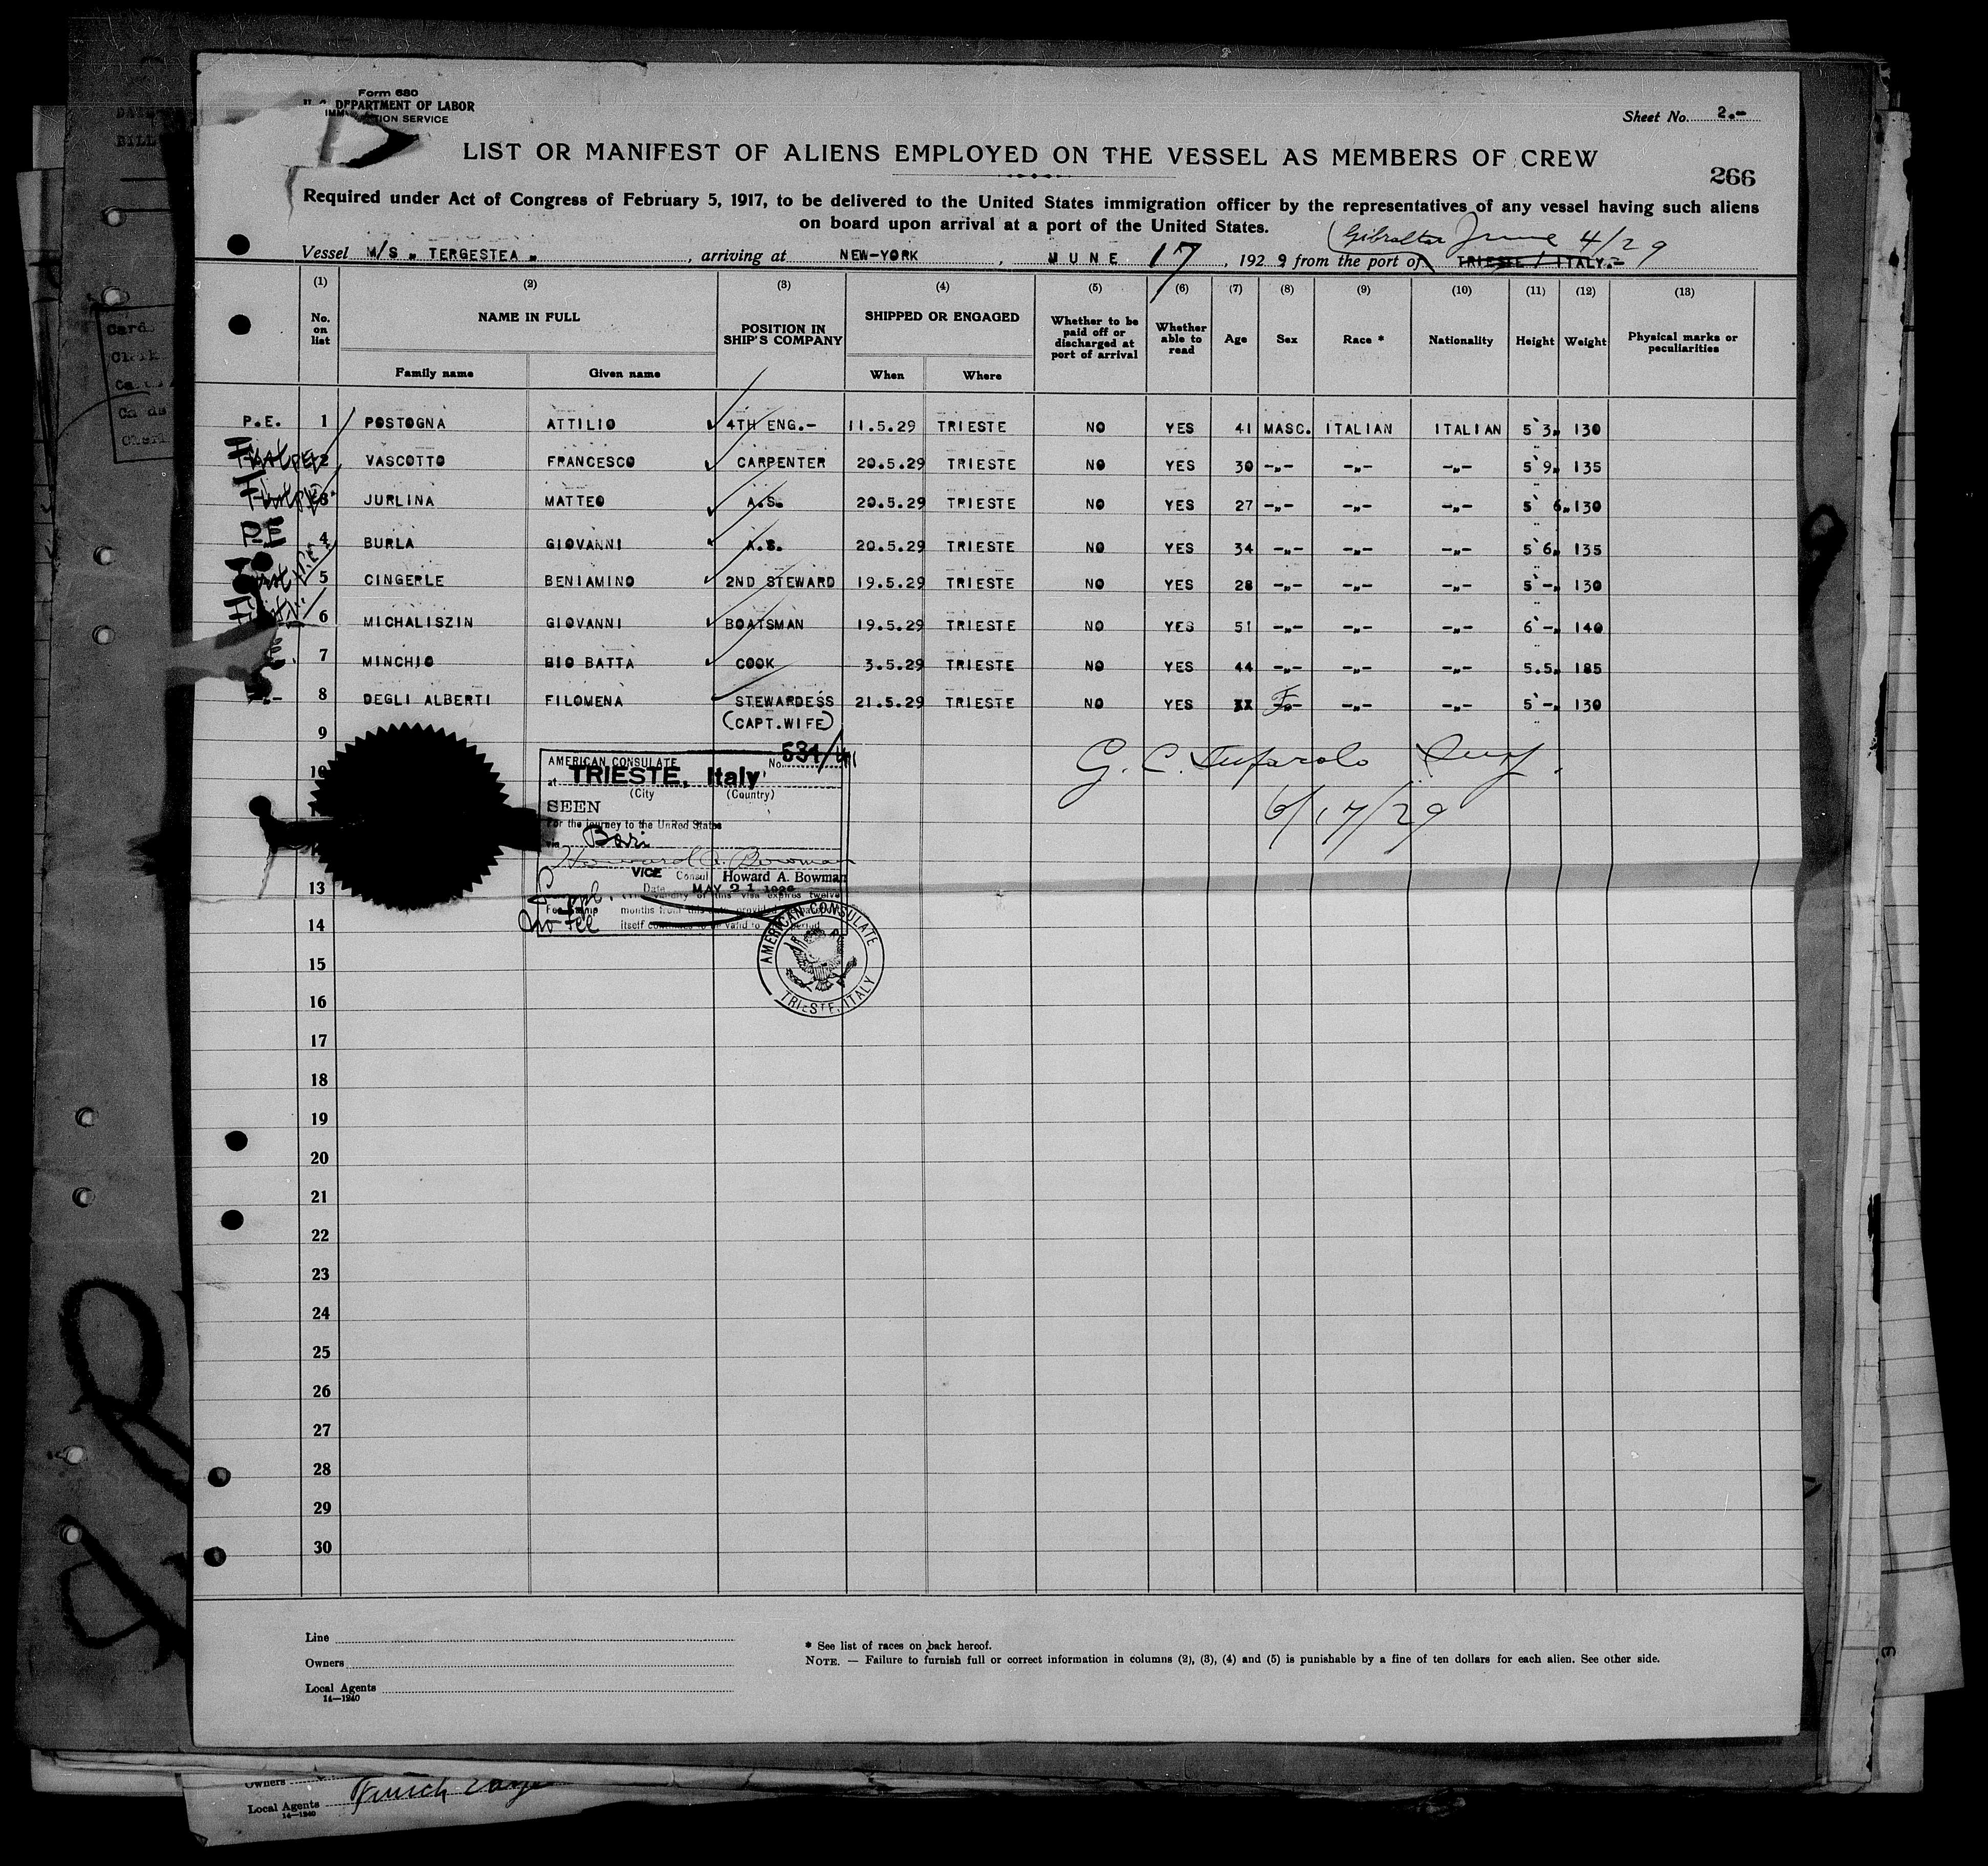 Form 680
U. S. DEPARTMENT OF LABOR
IMMIGRATION SERVICE
Sheet No. 2.-
LIST OR MANIFEST OF ALIENS EMPLOYED ON THE VESSEL AS MEMBERS OF CREW
266
Required under Act of Congress of February 5, 1917, to be delivered to the United States immigration officer by the representatives of any vessel having such aliens
on board upon arrival at a port of the United States.
Gibraltar June 4/29
Vessel M/S „ TERGESTEA „ , arriving at NEW-YORK , MUNE 17 , 1929 from the port of TRIESTE / ITALY.-
(1) (2) (3) (4) (5) (6) (7) (8) (9) (10) (11) (12) (13)
No. on list NAME IN FULL POSITION IN SHIP'S COMPANY SHIPPED OR ENGAGED Whether to be paid off or discharged at port of arrival Whether able to read Age Sex Race * Nationality Height Weight Physical marks or peculiarities
Family name Given name When Where
P.E. 1 POSTOGNA ATTILIO 4TH ENG.- 11.5.29 TRIESTE NO YES 41 MASC. ITALIAN ITALIAN 5`3„ 130
2 VASCOTTO FRANCESCO CARPENTER 20.5.29 TRIESTE NO YES 30 -„- -„- -„- 5`9„ 135
3 JURLINA MATTEO A.S. 20.5.29 TRIESTE NO YES 27 -„- -„- -„- 5` 6„ 130
P.E 4 BURLA GIOVANNI A.S. 20.5.29 TRIESTE NO YES 34 -„- -„- -„- 5`6„ 135
5 CINGERLE BENIAMINO 2ND STEWARD 19.5.29 TRIESTE NO YES 28 -„- -„- -„- 5`-„ 130
6 MICHALISZIN GIOVANNI BOATSMAN 19.5.29 TRIESTE NO YES 51 -„- -„- -„- 6`-„ 140
7 MINCHIO BIO BATTA COOK 3.5.29 TRIESTE NO YES 44 -„- -„- -„- 5.5„ 185
8 DEGLI ALBERTI FILOMENA STEWARDESS 21.5.29 TRIESTE NO YES XX F -„- -„- 5`-„ 130
(CAPT.WIFE)
9
10
AMERICAN CONSULATE No. 531/41
at TRIESTE, Italy
(City (Country)
SEEN
For the journey to the United States
via Bari
Howard A. Bowman
VICE Consul Howard A. Bowman
Date MAY 21 1929
Suppl.
No fee
AMERICAN CONSULATE
TRIESTE, ITALY
6/17/29
13
14
15
16
17
18
19
20
21
22
23
24
25
26
27
28
29
30
Line
Owners
Local Agents
14—1240
* See list of races on back hereof.
NOTE. — Failure to furnish full or correct information in columns (2), (3), (4) and (5) is punishable by a fine of ten dollars for each alien. See other side.
Owners
Local Agents
14—1240